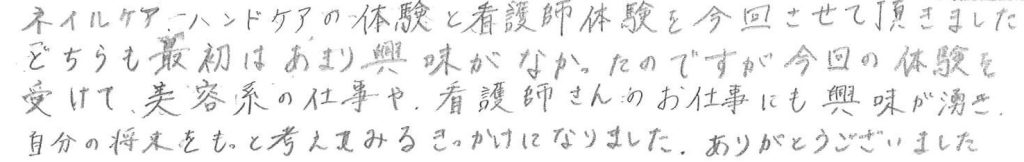 ネイルケア、ハンドケアの体験と看護師体験を今回させて頂きました
どちらも最初はあまり興味がなかったのですが今回の体験を
受けて、美容系の仕事や、看護師さんのお仕事にも興味が湧き、
自分の将来をもっと考えてみるきっかけになりました。ありがとうございました